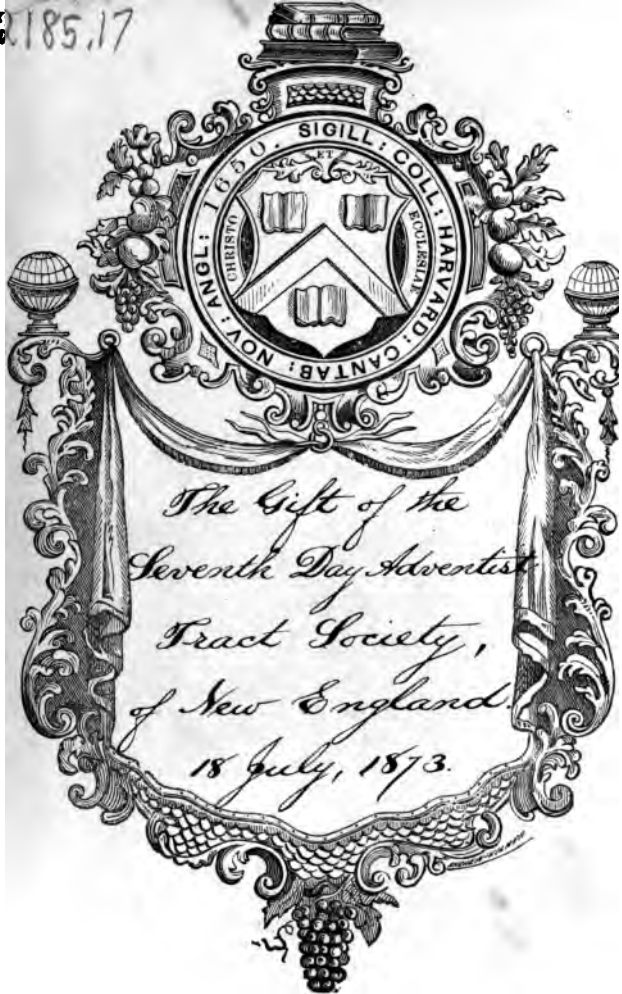 185.17
SIGILL: COLL: HARVARD: CANTAB: NOV: ANGL: 1650.
ET
CHRISTO
ECCLESIAE
The Gift of the
Seventh Day Adventist
Tract Society,
of New England.
18 July, 1873.